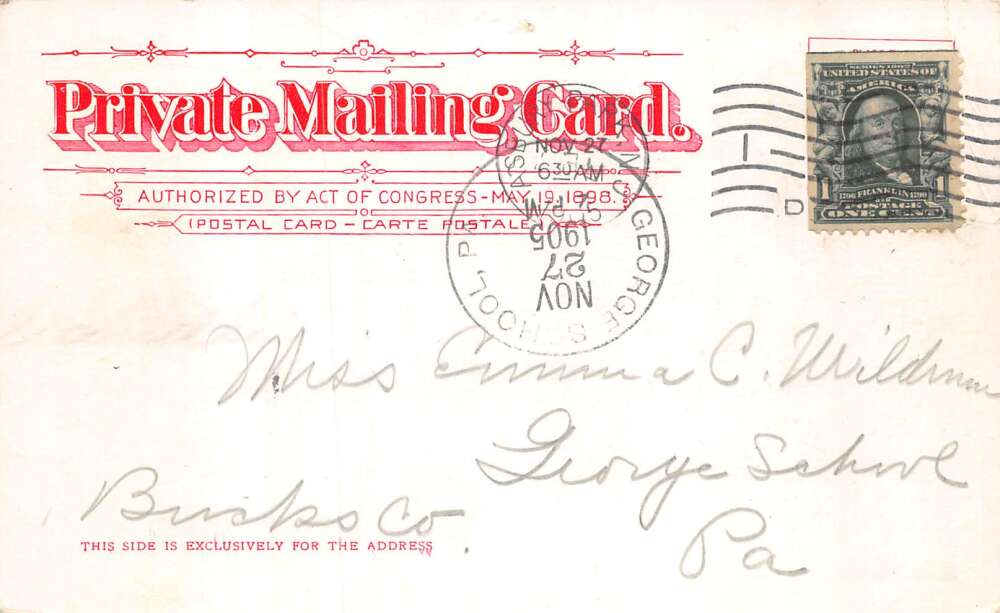 Private Mailing Card.
AUTHORIZED BY ACT OF CONGRESS-MAY 19, 1898.
(POSTAL CARD – CARTE POSTALE)
NOV 27
6 30 AM
GEORGE SCHOOL PA
NOV
27
1905
D
SERIES 1902
UNITED STATES OF
AMERICA
1706 FRANKLIN 1790
POSTAGE
1 ONE CENT 1
Miss Emma C. Wildman
George School
Bucks Co.
Pa
THIS SIDE IS EXCLUSIVELY FOR THE ADDRESS